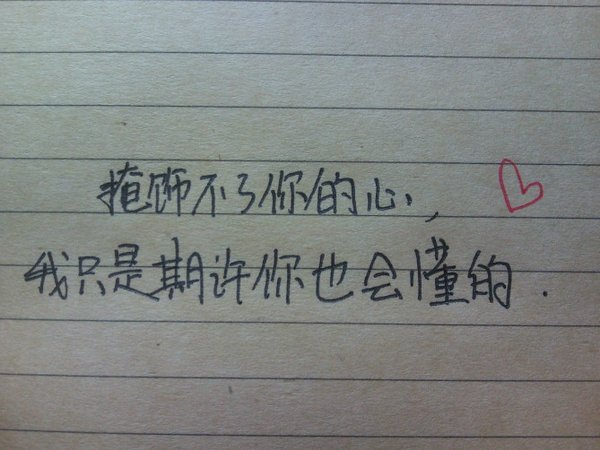 掩饰不了你的心，
我只是期许你也会懂的.